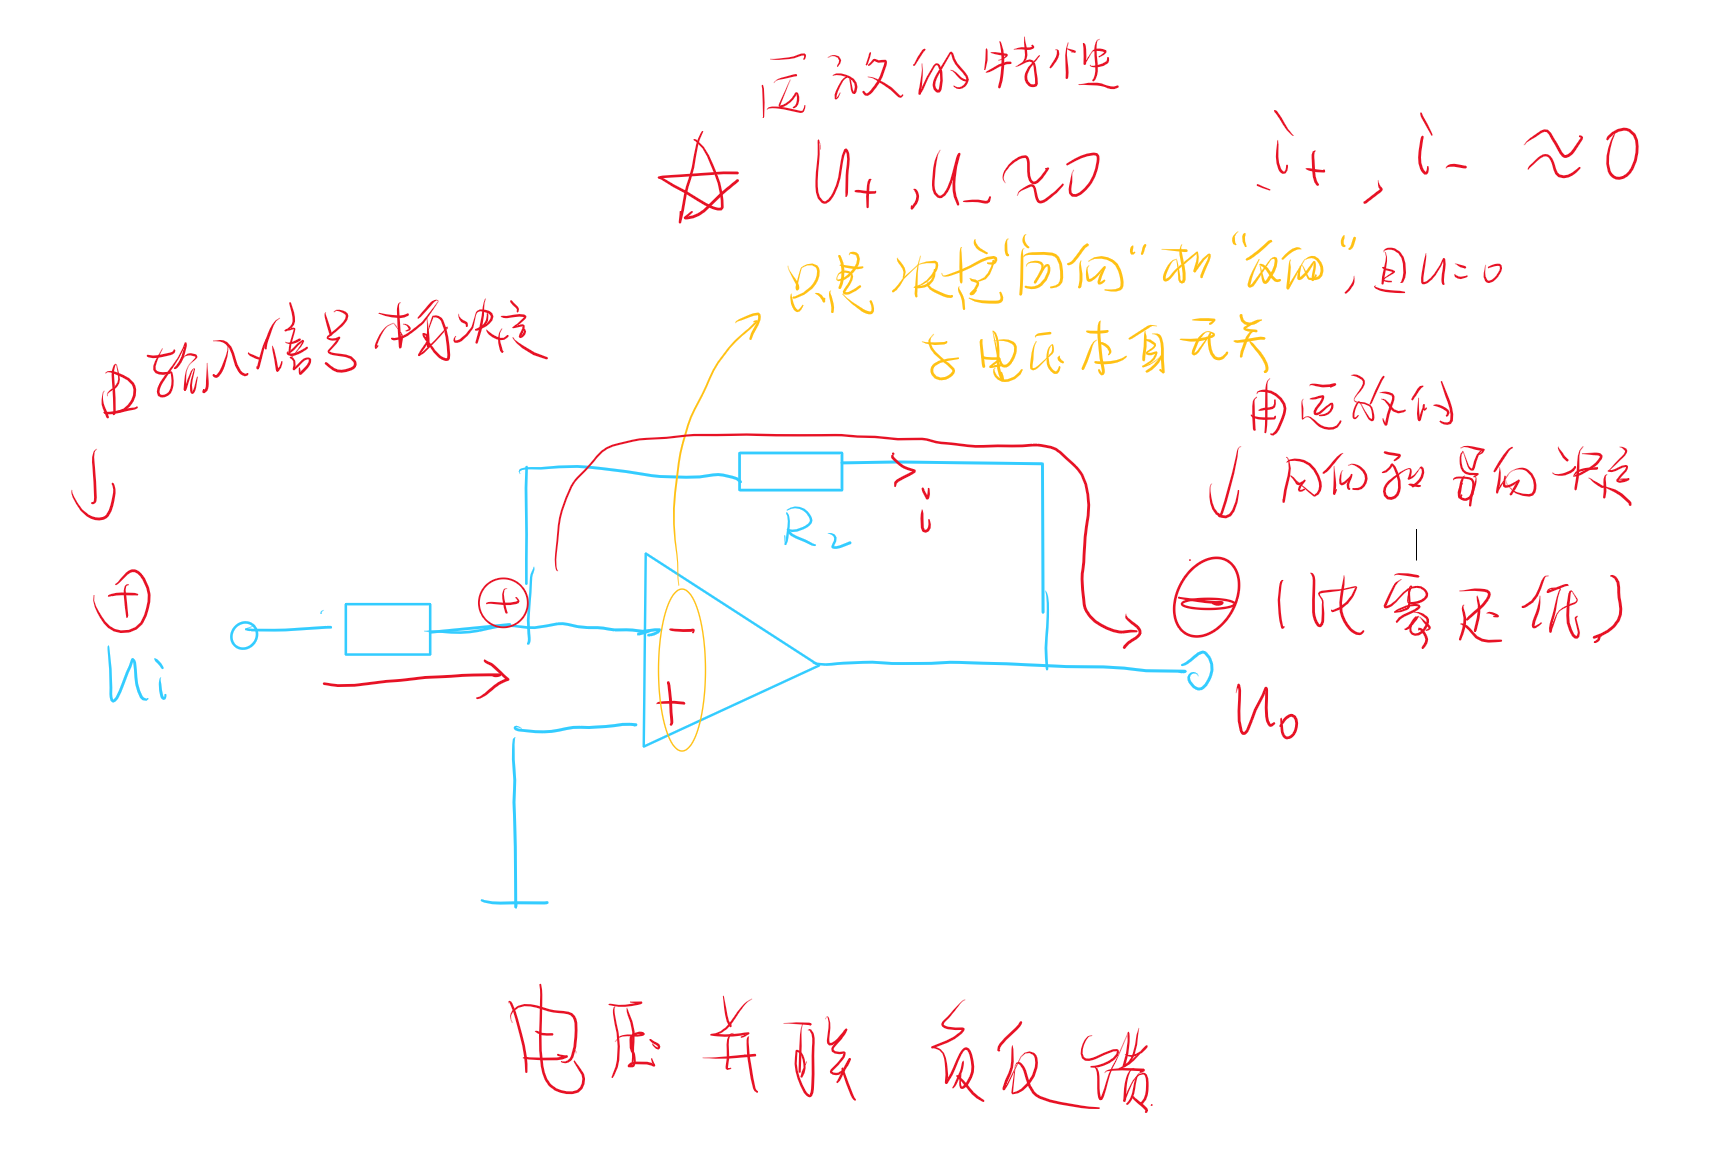 运放的特性
☆ U+ , U- ≈0 i+ , i- ≈0
只是决定"同向"和"反向", 且U=0
与电压本身无关
由输入信号本身决定
由运放的
同向和异向决定
R2
i
⊕
⊕
⊖ (比零还低)
ui
-
+
uo
电压并联 负反馈